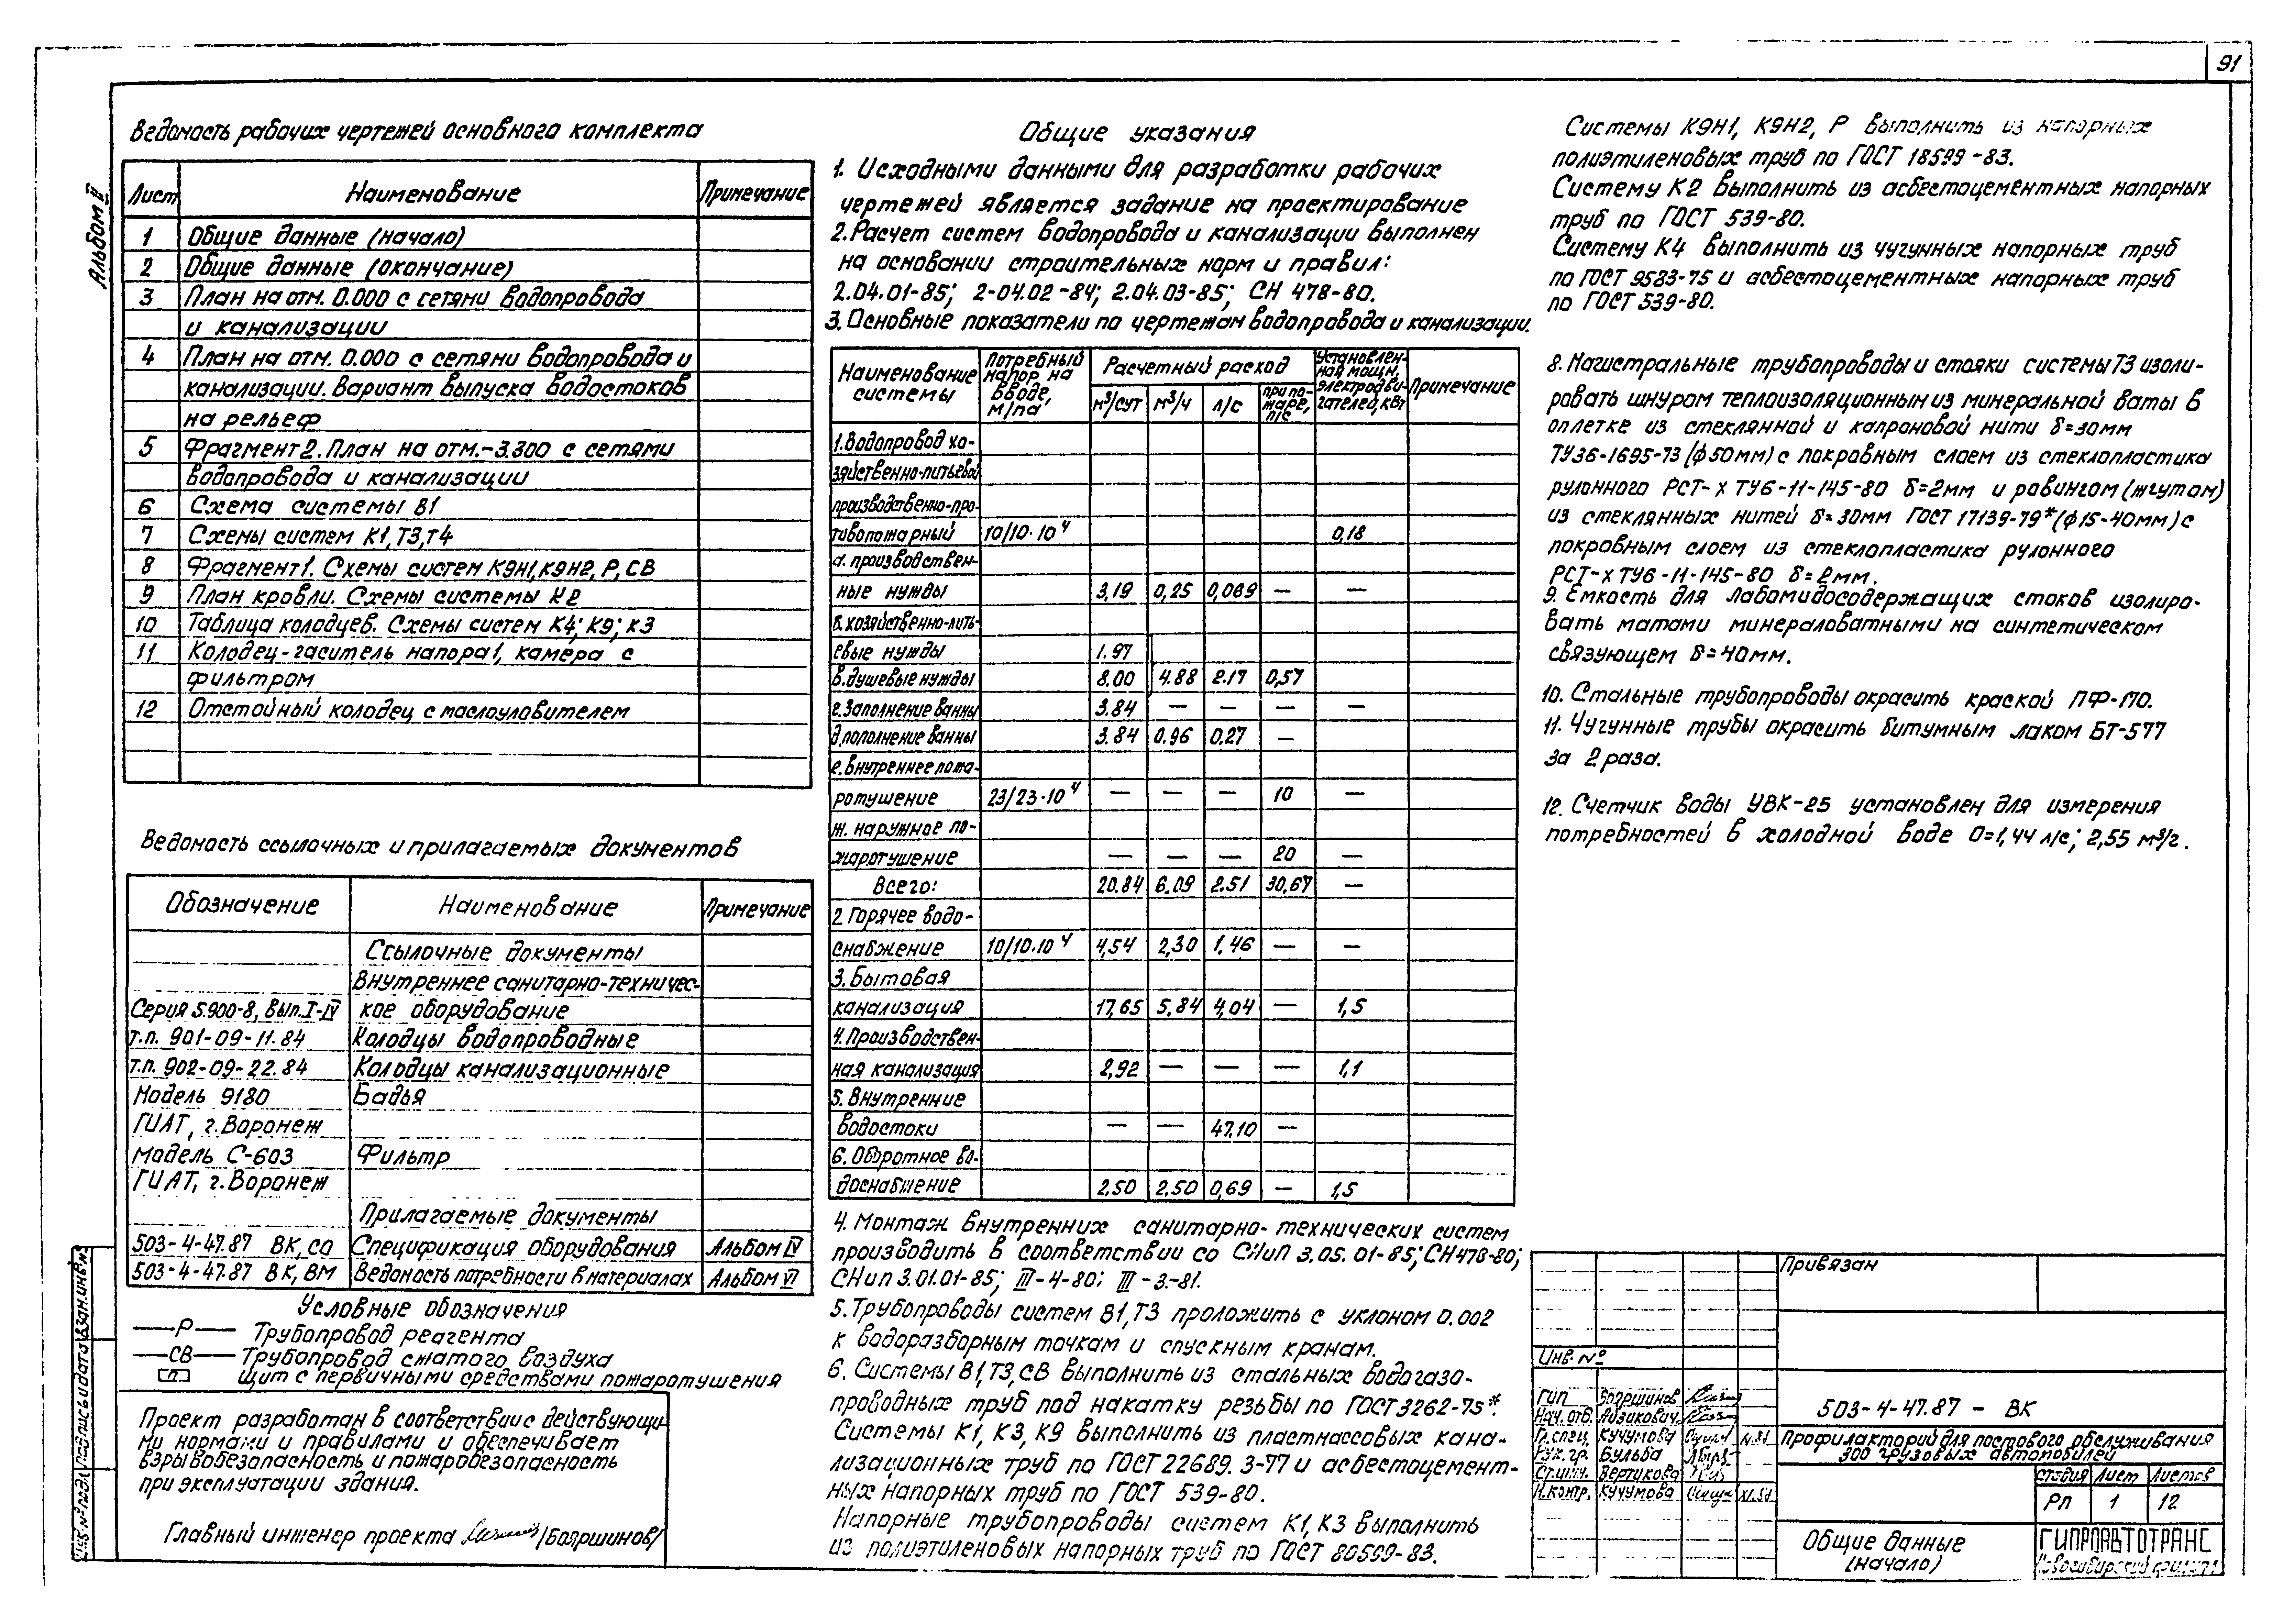 91
Альбом IV
Ведомость рабочих чертежей основного комплекта
Лист Наименование Примечание
1 Общие данные (начало)
2 Общие данные (окончание)
3 План на отм. 0.000 с сетями водопровода
и канализации
4 План на отм. 0.000 с сетями водопровода и
канализации. Вариант выпуска водостоков
на рельеф
5 Фрагмент 2. План на отм.-3.300 с сетями
водопровода и канализации
6 Схема системы В1
7 Схемы систем К1, Т3, Т4
8 Фрагмент 1. Схемы систем К9Н1, К9Н2, Р, СВ
9 План кровли. Схемы системы К2
10 Таблица колодцев. Схемы систем К4; К9; К3
11 Колодец-гаситель напора 1, камера с
фильтром
12 Отстойный колодец с маслоуловителем
Ведомость ссылочных и прилагаемых документов
Обозначение Наименование Примечание
Ссылочные документы
Внутреннее санитарно-техничес-
Серия 5.900-8, вып. I-IV кое оборудование
т.п. 901-09-11.84 Колодцы водопроводные
т.п. 902-09-22.84 Колодцы канализационные
Модель 9180 Бадья
ГИАТ, г. Воронеж
модель С-603 Фильтр
ГИАТ, г. Воронеж
Прилагаемые документы
503-4-47.87 ВК, СО Спецификация оборудования Альбом IV
503-4-47.87 ВК, ВМ Ведомость потребности в материалах Альбом VI
Условные обозначения
—Р— Трубопровод реагента
—СВ— Трубопровод сжатого воздуха
П Щит с первичными средствами пожаротушения
Проект разработан в соответствии с действующи-
ми нормами и правилами и обеспечивает
взрывобезопасность и пожаробезопасность
при эксплуатации здания.
Главный инженер проекта /Бояршинов/
Общие указания
1. Исходными данными для разработки рабочих
чертежей является задание на проектирование
2. Расчет систем водопровода и канализации выполнен
на основании строительных норм и правил:
2.04.01-85; 2-04.02-84; 2.04.03-85; СН 478-80.
3. Основные показатели по чертежам водопровода и канализации.
Наименование системы Потребный напор на вводе, м/па Расчетный расход Установлен-ная мощн. электродви-гателей, кВт Примечание
м³/сут м³/ч л/с при по-жаре, л/с
1. Водопровод хо-
зяйственно-питьевой
производственно-про-
тивопожарный 10/10·10⁴ 0,18
а. производствен-
ные нужды 3,19 0,25 0,069 — —
б. хозяйственно-пить-
евые нужды 1.97
в. душевые нужды 8.00 4.88 2.17 0,57
г. Заполнение ванны 3.84 — — — —
д. пополнение ванны 3.84 0.96 0.27 —
е. внутреннее пожа-
ротушение 23/23·10⁴ — — — 10 —
ж. наружное по-
жаротушение — — — 20 —
Всего: 20.84 6.09 2.51 30,67 —
2 Горячее водо-
снабжение 10/10·10⁴ 4,54 2,30 1,46 — —
3. Бытовая
канализация 17,65 5,84 4,04 — 1,5
4. Производствен-
ная канализация 2,92 — — — 1,1
5. Внутренние
водостоки — — 47,10 —
6. Оборотное во-
доснабжение 2,50 2,50 0,69 — 1,5
4. Монтаж внутренних санитарно-технических систем
производить в соответствии со СНиП 3.05.01-85; СН 478-80;
СНиП 3.01.01-85; III-4-80; III-3-81.
5. Трубопроводы систем В1, Т3 проложить с уклоном 0.002
к водоразборным точкам и спускным кранам.
6. Системы В1, Т3, СВ выполнить из стальных водогазо-
проводных труб под накатку резьбы по ГОСТ 3262-75*.
Системы К1, К3, К9 выполнить из пластмассовых кана-
лизационных труб по ГОСТ 22689.3-77 и асбестоцемент-
ных напорных труб по ГОСТ 539-80.
Напорные трубопроводы систем К1, К3 выполнить
из полиэтиленовых напорных труб по ГОСТ 80599-83.
Системы К9Н1, К9Н2, Р выполнить из напорных
полиэтиленовых труб по ГОСТ 18599-83.
Систему К2 выполнить из асбестоцементных напорных
труб по ГОСТ 539-80.
Систему К4 выполнить из чугунных напорных труб
по ГОСТ 9583-75 и асбестоцементных напорных труб
по ГОСТ 539-80.
8. Магистральные трубопроводы и стояки системы Т3 изоли-
ровать шнуром теплоизоляционным из минеральной ваты в
оплетке из стеклянной и капроновой нити δ=30мм
ТУ36-1695-73 (ф50мм) с покровным слоем из стеклопластика
рулонного РСТ-Х ТУ6-11-145-80 δ=2мм и ровингом (жгутом)
из стеклянных нитей δ=30мм ГОСТ 17139-79* (ф15-40мм) с
покровным слоем из стеклопластика рулонного
РСТ-Х ТУ6-11-145-80 δ=2мм.
9. Емкость для лабомидосодержащих стоков изолиро-
вать матами минераловатными на синтетическом
связующем δ=40мм.
10. Стальные трубопроводы окрасить краской ПФ-170.
11. Чугунные трубы окрасить битумным лаком БТ-577
за 2 раза.
12. Счетчик воды УВК-25 установлен для измерения
потребностей в холодной воде Q=1,44 л/с; 2,55 м³/г.
Привязан
Инв. №
503-4-47.87 - ВК
ГИП Бояршинов
Нач. отв. Айзикович
Гл. спец. Кучумова
Рук. гр. Бульба
Ст. инж. Вертикова
Н. контр. Кучумова
Профилакторий для постового обслуживания
300 грузовых автомобилей
Стадия Лист Листов
РП 1 12
Общие данные
(начало)
ГИПРОАВТОТРАНС
Новосибирский филиал
Инв. № подл. Подпись и дата Взам. инв. №